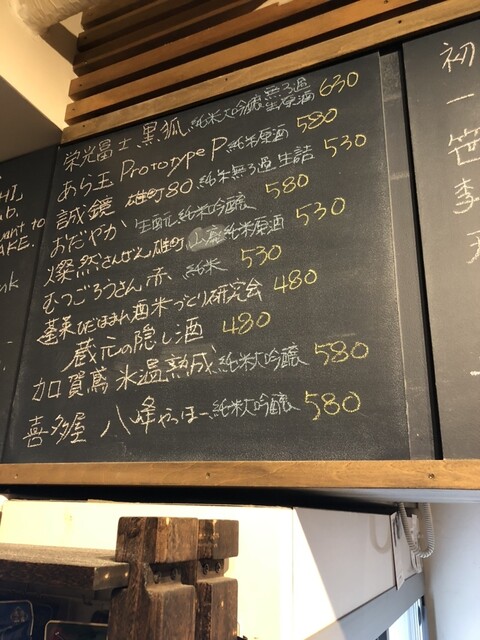 栄光冨士 黒狐 純米大吟醸 無ろ過生原酒 630
あら玉 Prototype P 純米原酒 580
誠鏡 雄町80 純米無ろ過生詰 530
おだやか 生酛純米吟醸 580
燦然 さんぜん 雄町 山廃純米原酒 530
むつごろうさん 赤 純米 530
蓬莱 ひだほまれ 酒米づくり研究会
蔵元の隠し酒 480
480
加賀鳶 氷温熟成 純米大吟醸 580
喜多屋 八峰やっほー 純米大吟醸 580
初
一
笹
李
HI
ub.
want to
AKE.
nk